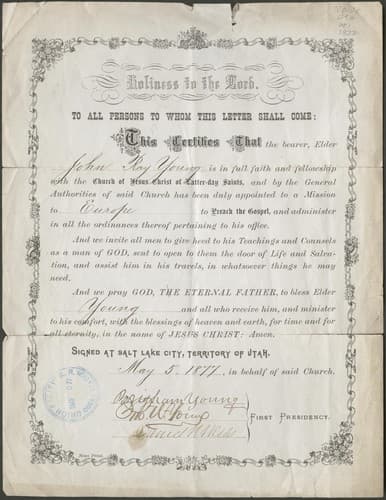 Holiness to the Lord.
TO ALL PERSONS TO WHOM THIS LETTER SHALL COME:
This Certifies That the bearer, Elder
John Ray Young is in full faith and fellowship
with the Church of Jesus Christ of Latter-day Saints, and by the General
Authorities of said Church has been duly appointed to a Mission
to Europe to Preach the Gospel, and administer
in all the ordinances thereof pertaining to his office.
And we invite all men to give heed to his Teachings and Counsels
as a man of GOD, sent to open to them the door of Life and Salva-
tion, and assist him in his travels, in whatsoever things he may
need.
And we pray GOD, THE ETERNAL FATHER, to bless Elder
Young and all who receive him, and minister
to his comfort, with the blessings of heaven and earth, for time and for
all eternity, in the name of JESUS CHRIST: Amen.
SIGNED AT SALT LAKE CITY, TERRITORY OF UTAH,
May 5, 1877, in behalf of said Church.
Brigham Young
Jno. W. Young
Daniel H. Wells
FIRST PRESIDENCY.
News Print.